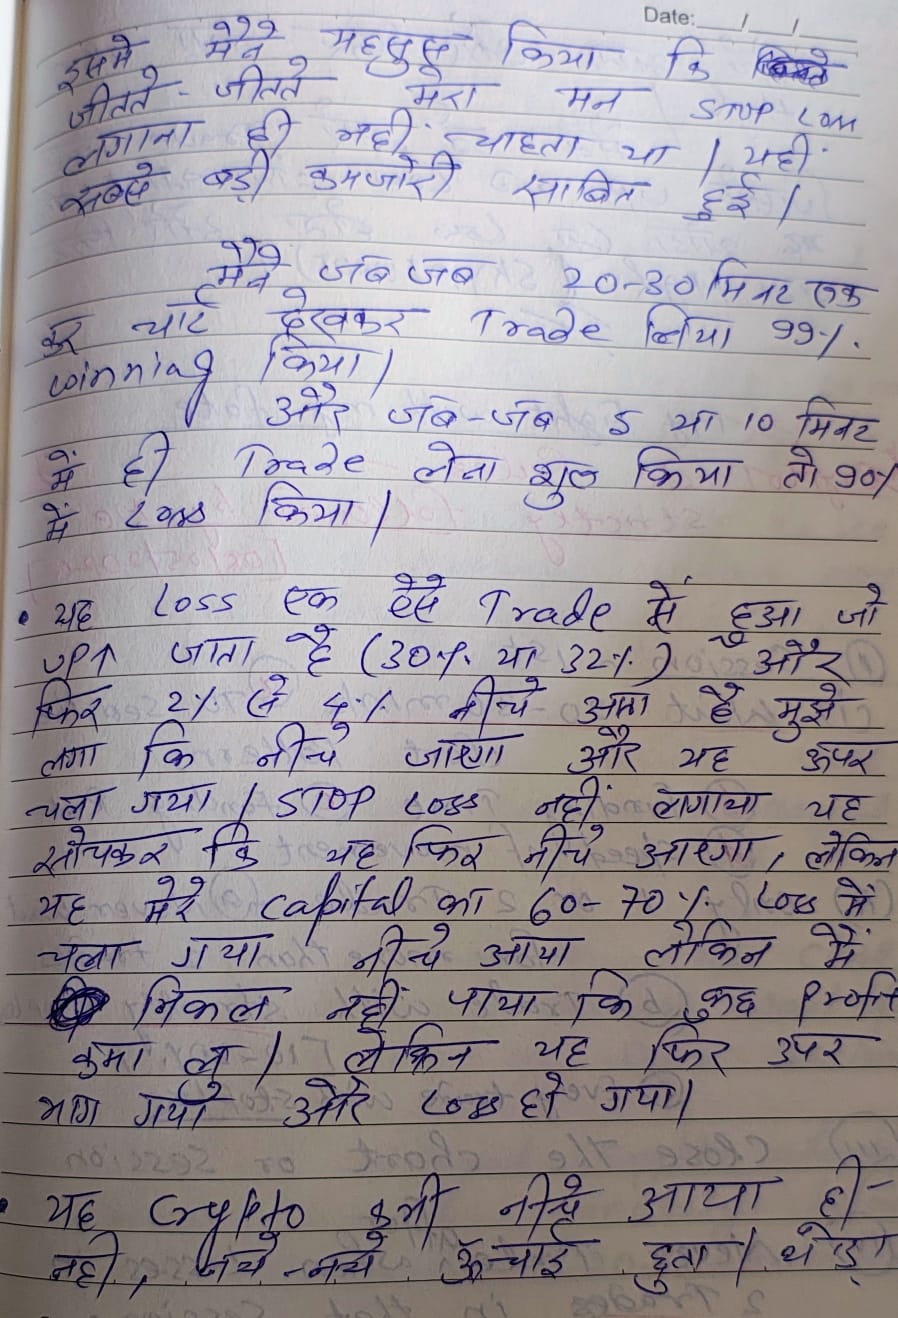 Date: __/__/__
इसमे मैंने महसुस किया कि
जीतते - जीतते मेरा मन STOP Loss
लगाना ही नही चाहता था | यही
सबसे बड़ी कमजोरी साबित हुई |
मैंने जब जब 20-30 मिनट रुक
कर चार्ट देखकर Trade लिया 99%
winning किया |
और जब-जब 5 या 10 मिनट
में ही Trade लेना शुरु किया तो 90%
में Loss किया |
• यह Loss एक ऐसे Trade में हुआ जो
UP↑ जाता है (30% या 32%) और
फिर 2% से 4% नीचे आता है मुझे
लगा कि नीचे जाएगा और यह ऊपर
चला गया | STOP Loss नहीं लगाया यह
सोचकर कि यह फिर नीचे आएगा, लेकिन
यह मेरे Capital का 60-70% Loss में
चला गया नीचे आया लेकिन मैं
निकल नहीं पाया कि कुछ Profit
कमा लु | लेकिन यह फिर उपर
भाग गया और Loss हो गया |
• यह Crypto कभी नीचे आया ही-
नही, नये-नये ऊँचाई छुता | थोड़ा